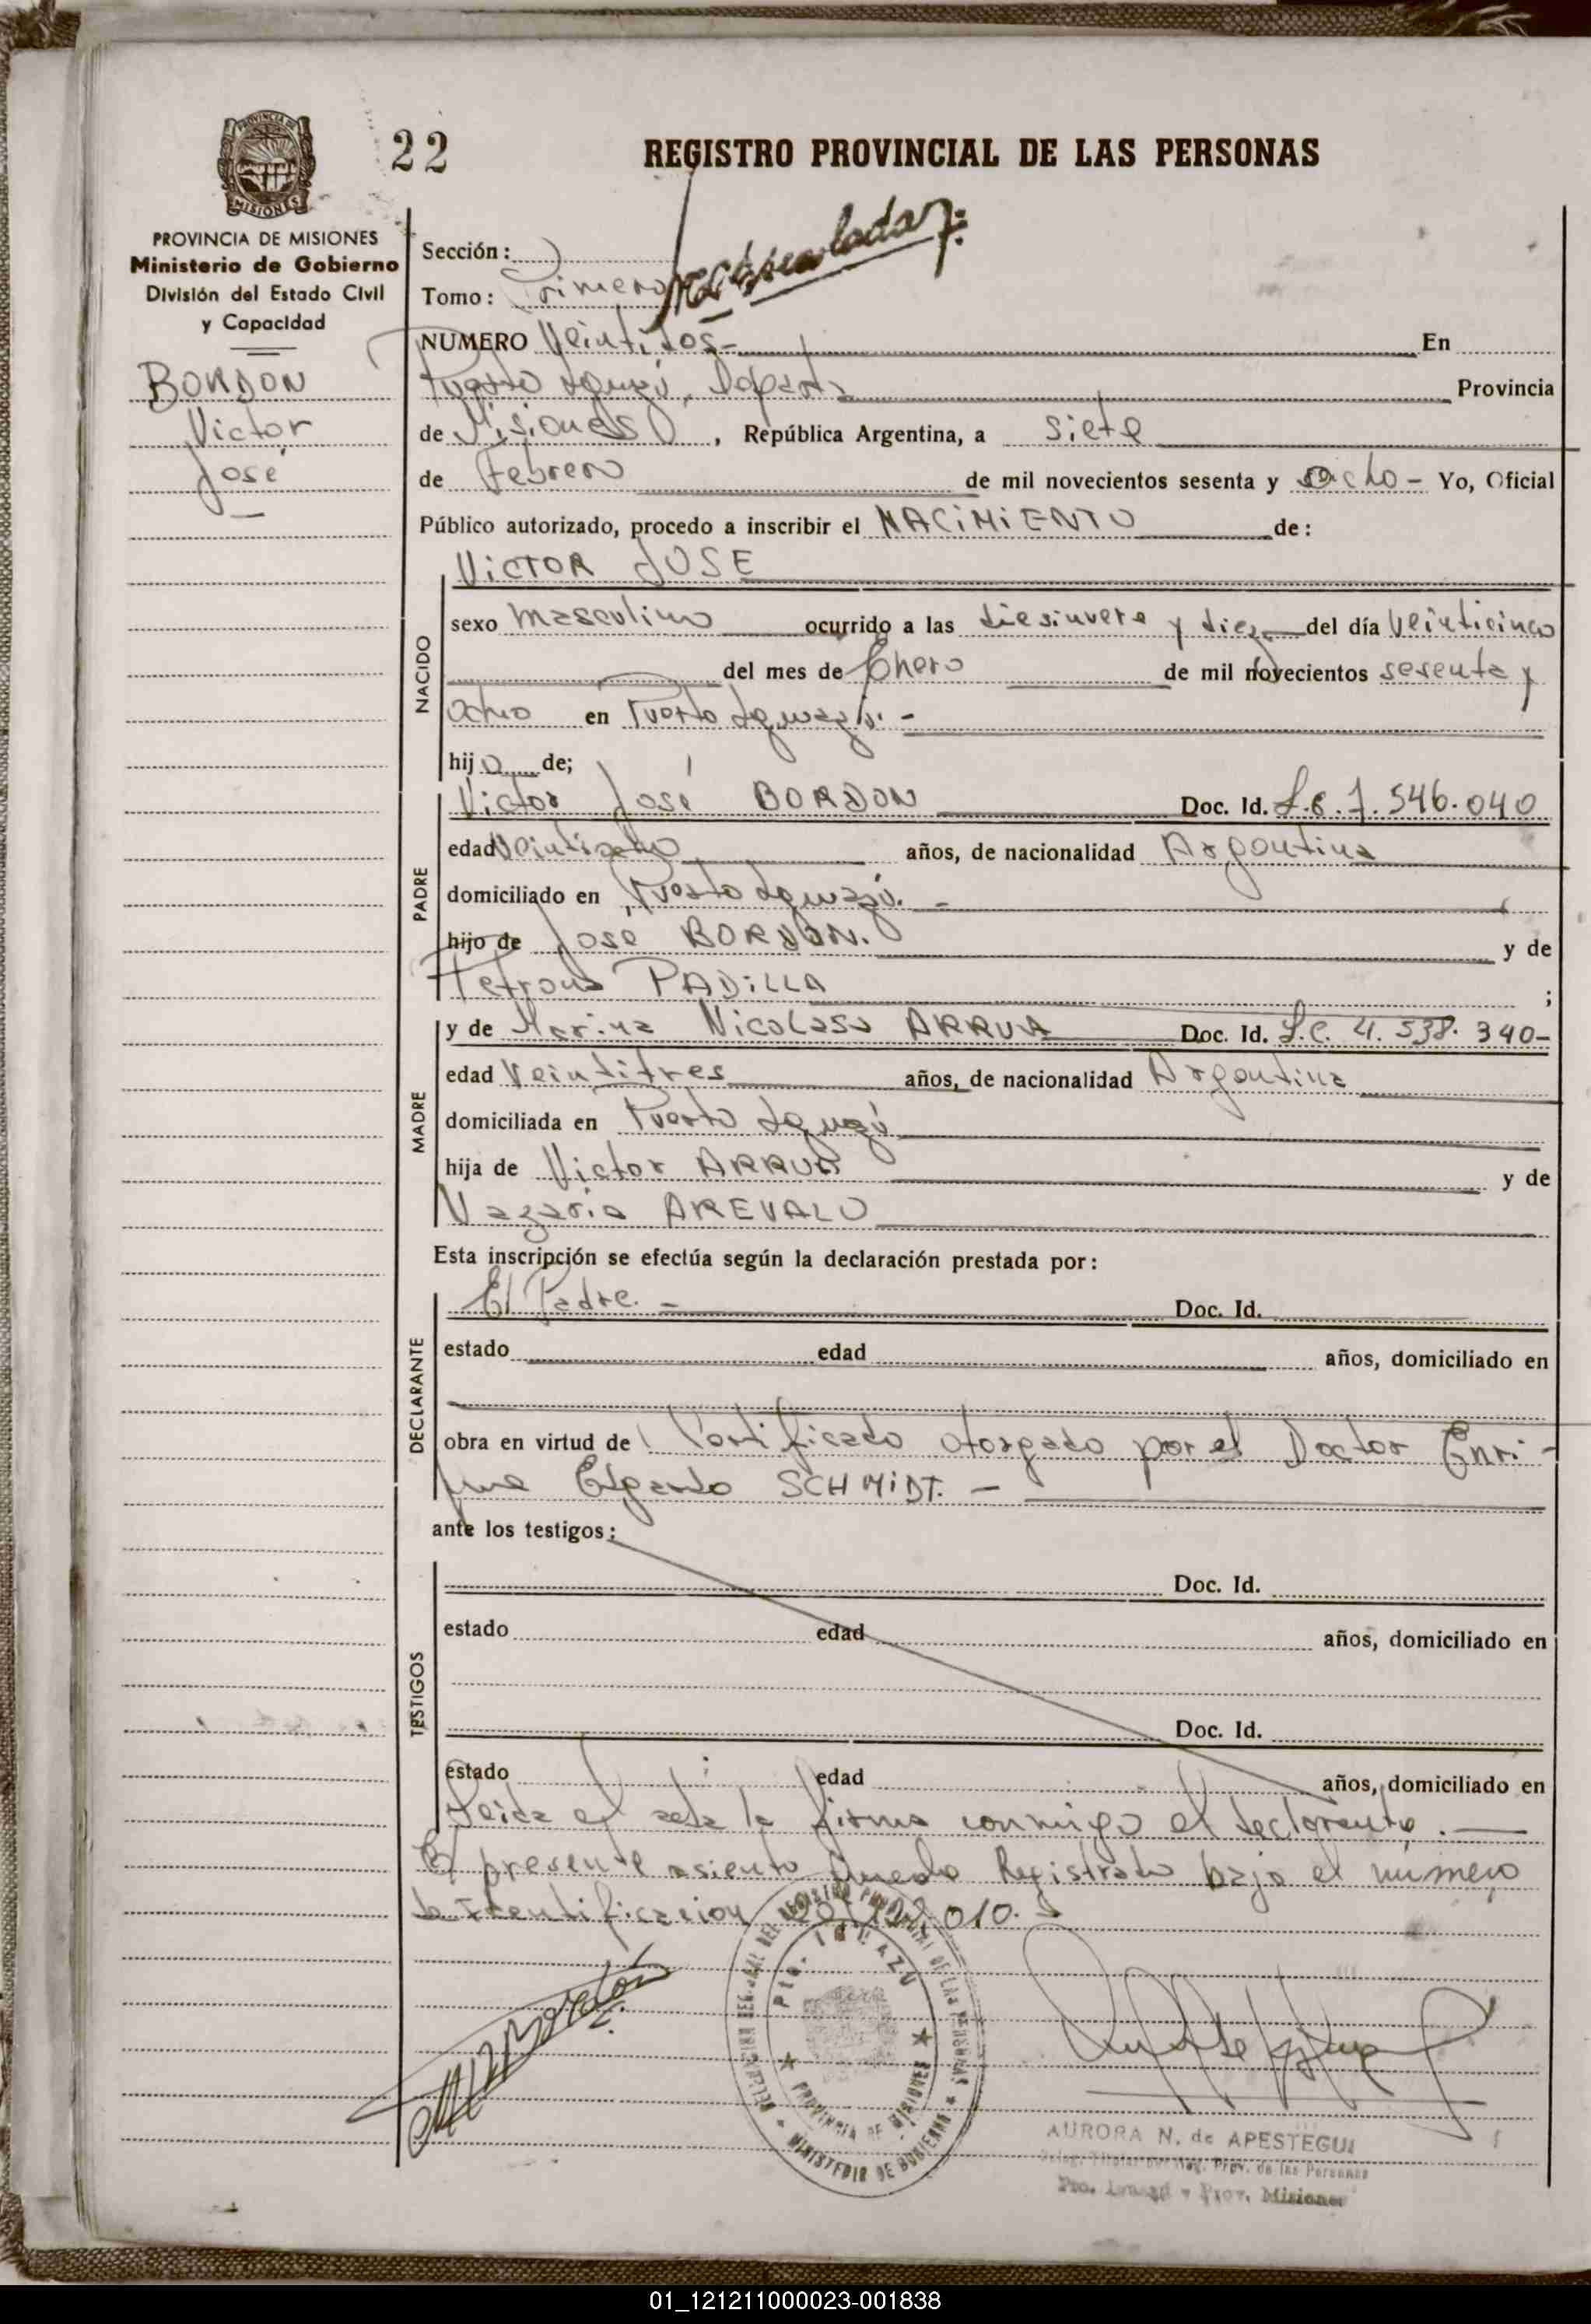 22
REGISTRO PROVINCIAL DE LAS PERSONAS
PROVINCIA DE MISIONES
Ministerio de Gobierno
División del Estado Civil
y Capacidad
BORDON
Victor
José
Sección:
Tomo: Primero
NUMERO Veintidos- En
Puerto Iguazú, Departo Provincia
de Misiones, República Argentina, a siete
de Febrero de mil novecientos sesenta y ocho - Yo, Oficial
Público autorizado, procedo a inscribir el NACIMIENTO de:
VICTOR JOSE
NACIDO
sexo masculino ocurrido a las diesinueve y diez del día veinticinco
del mes de Enero de mil novecientos sesenta y
ocho en Puerto Iguazú. -
hijo de;
PADRE
Victor José BORDON Doc. Id. L.E. 7.546.040
edad Veintiocho años, de nacionalidad Argentina
domiciliado en Puerto Iguazú. -
hijo de José BORDON. y de
Petrona PADILLA ;
MADRE
y de Marina Nicolasa ARRUA Doc. Id. L.C. 4.538.340-
edad Veintitres años, de nacionalidad Argentina
domiciliada en Puerto Iguazú
hija de Victor ARRUA y de
AREVALO
Esta inscripción se efectúa según la declaración prestada por:
DECLARANTE
El Padre. - Doc. Id.
estado edad años, domiciliado en
obra en virtud de Certificado otorgado por el Doctor Enri-
que Edgardo SCHMIDT. -
ante los testigos:
TESTIGOS
Doc. Id.
estado edad años, domiciliado en
Doc. Id.
estado edad años, domiciliado en
Leida el acta la firma conmigo el declarante. -
El presente asiento queda Registrado bajo el número
de Identificacion 010.
Pto. IGUAZU
PROVINCIA DE MISIONES
MINISTERIO DE GOBIERNO
AURORA N. de APESTEGUI
Reg. Prov. de las Personas
Pto. Iguazú - Prov. Misiones
01_121211000023-001838